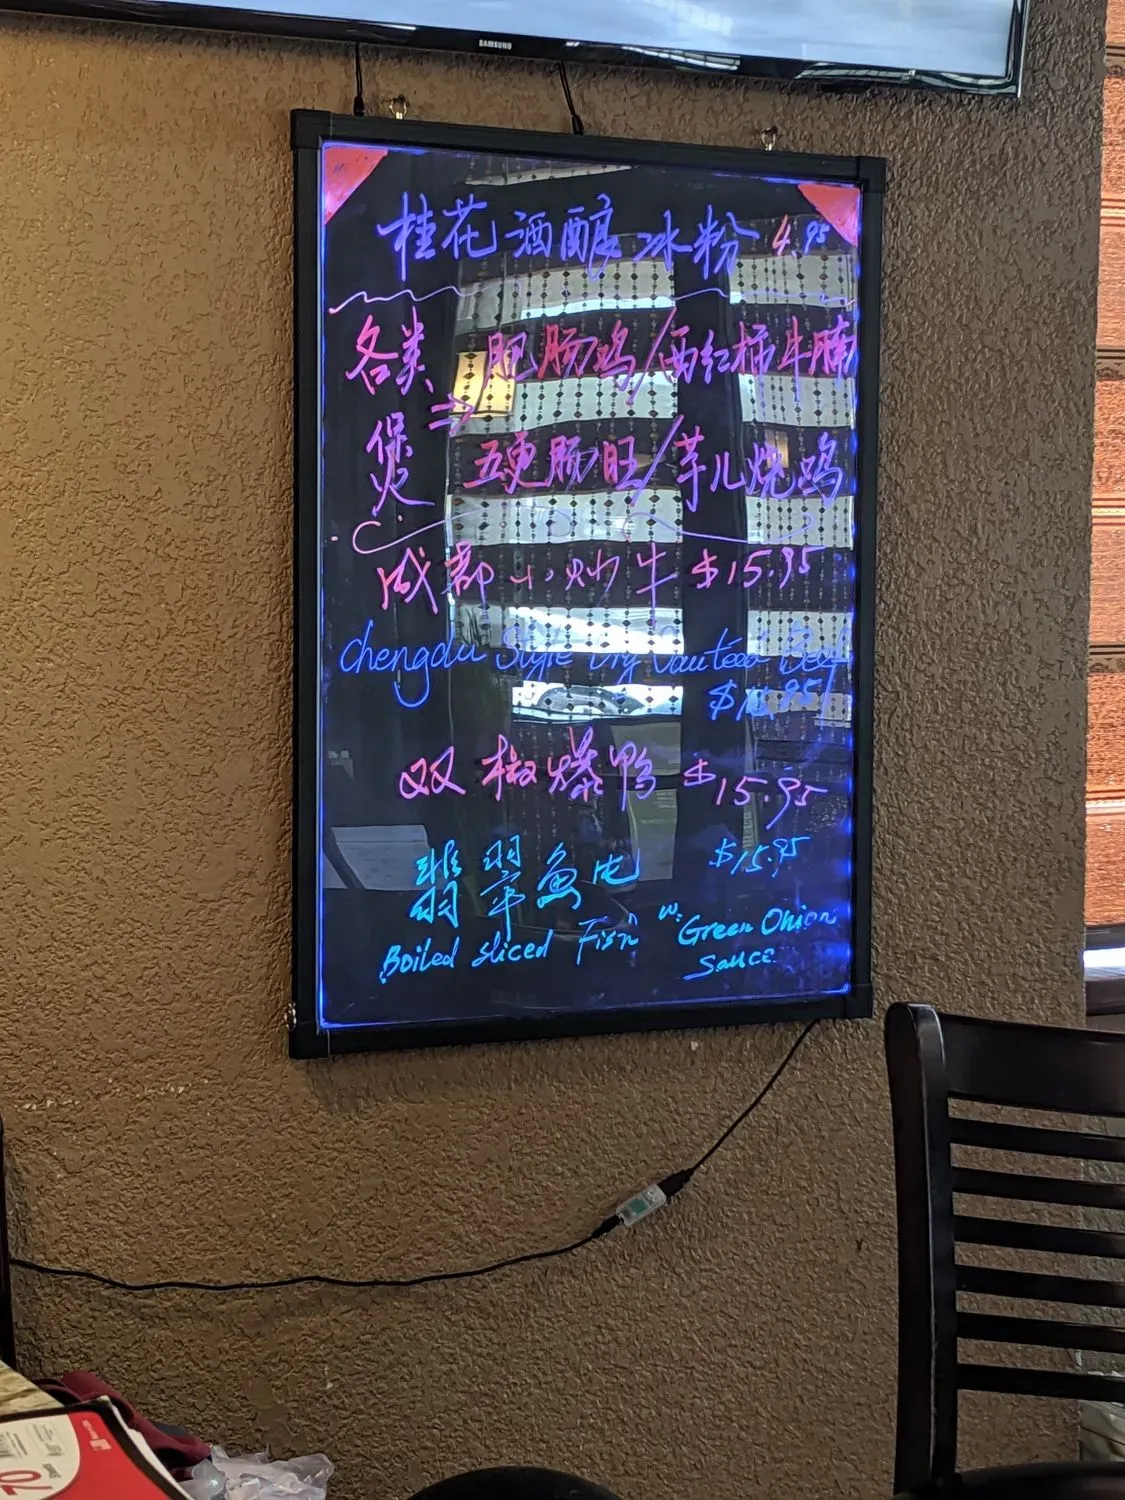 SAMSUNG
桂花酒酿冰粉 4.95
各类煲 ⇒ 肥肠鸡/西红柿牛腩
五更肠旺/芋儿烧鸡
成都小炒牛 $15.95
Chengdu Style Dry Sauteed Beef
$15.95
双椒爆鸭 $15.95
翡翠鱼片 $15.95
Boiled sliced Fish w: Green Onion
Sauce
70